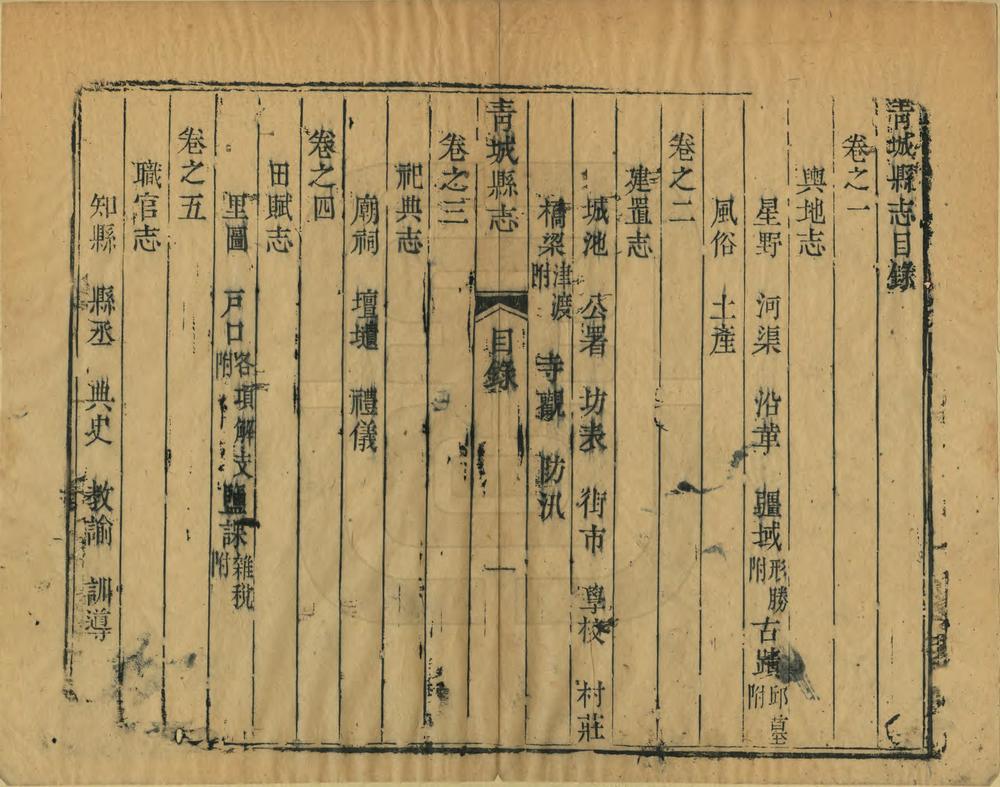 青城縣志目錄
卷之一
輿地志
星野 河渠 沿革 疆域形勝附 古蹟邱墓附
風俗 土產
卷之二
建置志
城池 公署 坊表 街市 學校 村莊
橋梁津渡附 寺觀 防汛
青城縣志 目錄 一
卷之三
祀典志
廟祠 壇壝 禮儀
卷之四
田賦志
里圖 戶口各項解支附 鹽課雜稅附
卷之五
職官志
知縣 縣丞 典史 教諭 訓導